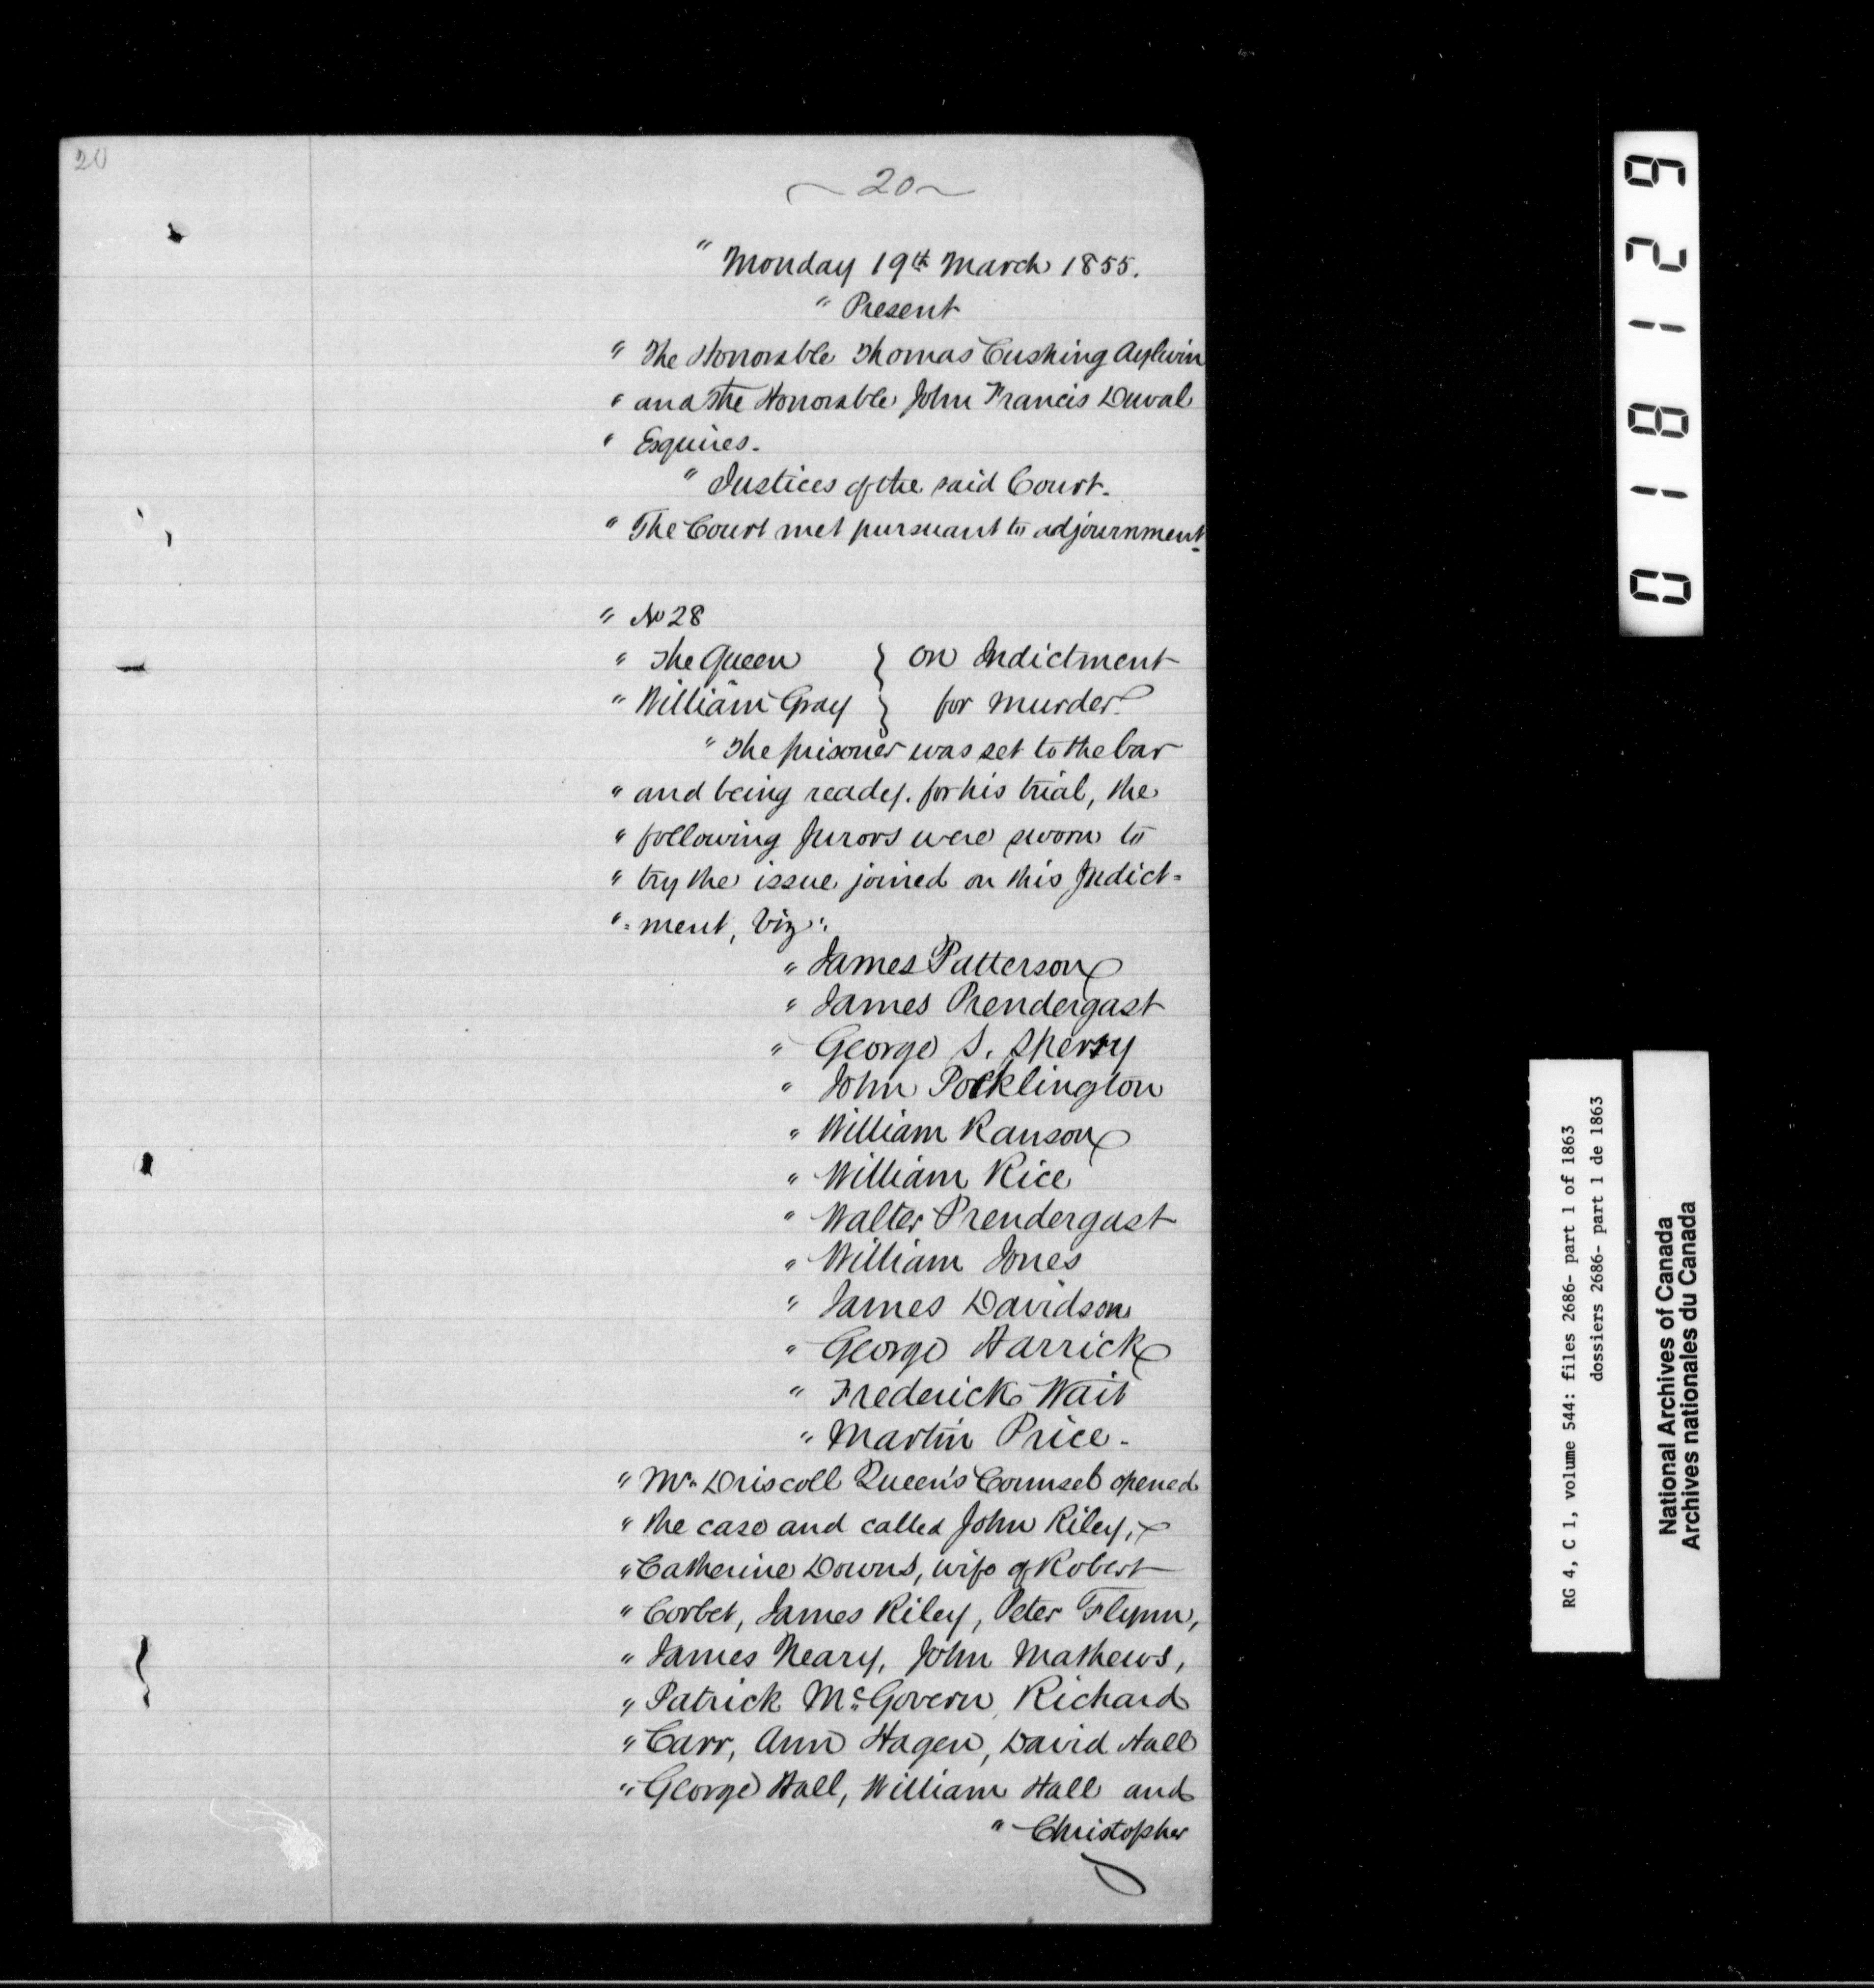 20
~ 20 ~
" Monday 19th March 1855.
" Present
" The Honorable Thomas Cushing Aylwin
" and the Honorable John Francis Duval
" Esquires.
" Justices of the said Court.
" The Court met pursuant to adjournment.
" No 28
" The Queen } On Indictment
" William Gray } for Murder.
" The prisoner was set to the bar
" and being ready, for his trial, the
" following Jurors were sworn to
" try the issue joined on this Indict=
" =ment, Viz:
" James Patterson
" James Prendergast
" George S. Sherry
" John Pocklington
" William Ranson
" William Rice
" Walter Prendergast
" William Jones
" James Davidson
" George Harrick
" Frederick Wait
" Martin Price.
" Mr. Driscoll Queen's Counsel opened
" the case and called John Riley,
" Catherine Downs, wife of Robert
" Corbet, James Riley, Peter Flynn,
" James Neary, John Mathews,
" Patrick McGovern, Richard
" Carr, Ann Hagen, David Hall
" George Hall, William Hall and
" Christopher
018129
RG 4, C 1, volume 544: files 2686- part 1 of 1863
dossiers 2686- part 1 de 1863
National Archives of Canada
Archives nationales du Canada